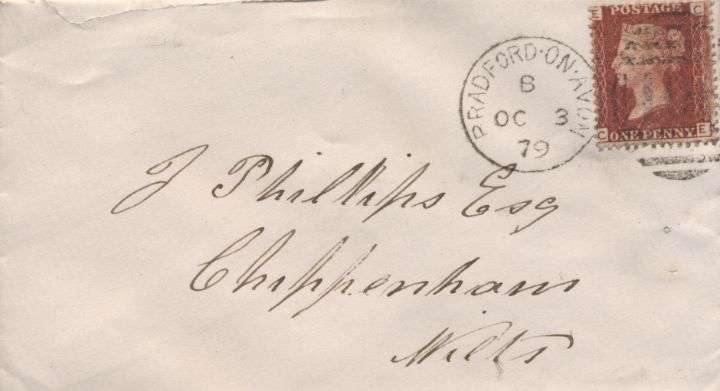 E POSTAGE C
BRADFORD·ON·AVON
B
OC 3
79
C ONE PENNY E
J Phillips Esq
Chippenham
Wilts